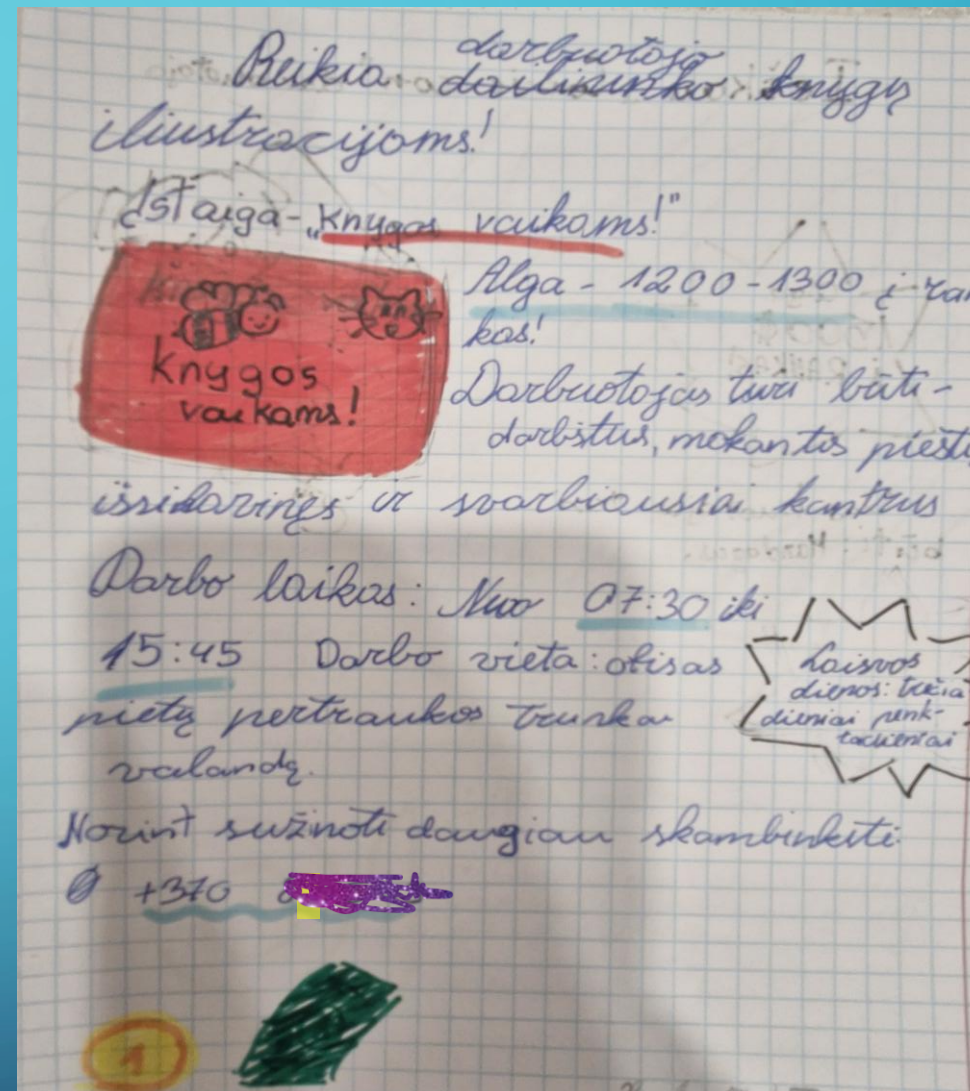 darbuotojo
Reikia dailininko knygų
iliustracijoms!
Įstaiga - „knygos vaikams!"
Alga - 1200 - 1300 į ran
kas!
knygos
vaikams!
Darbuotojas turi būti -
darbštus, mokantis piešti
išsilavinęs ir svarbiausiai kantrus
Darbo laikas: Nuo 07:30 iki
15:45 Darbo vieta: ofisas
pietų pertraukos trunka
valandą.
Laisvos
dienos: trečia
dieniai penk-
tadieniai
Norint sužinoti daugiau skambinkite
+370
1